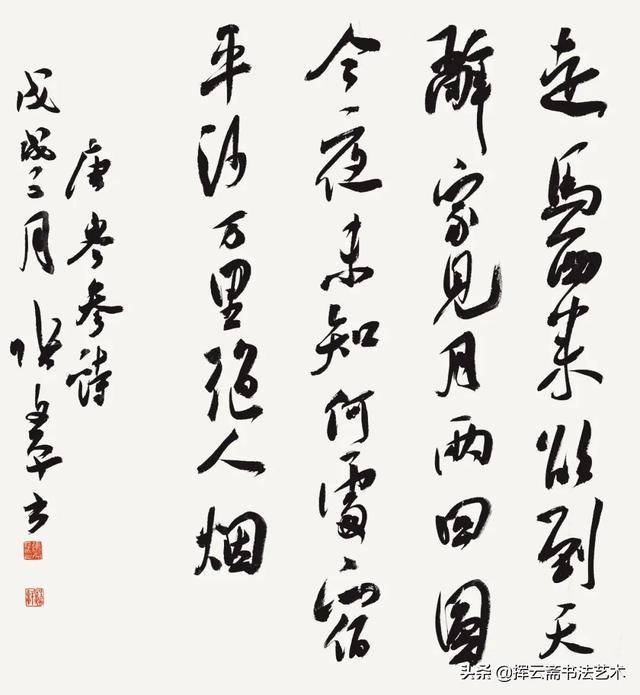 走馬西来欲到天
辭家見月兩回圓
今夜未知何處宿
平沙万里絕人烟
唐岑參詩
戊戌二月張書
头条 @挥云斋书法艺术